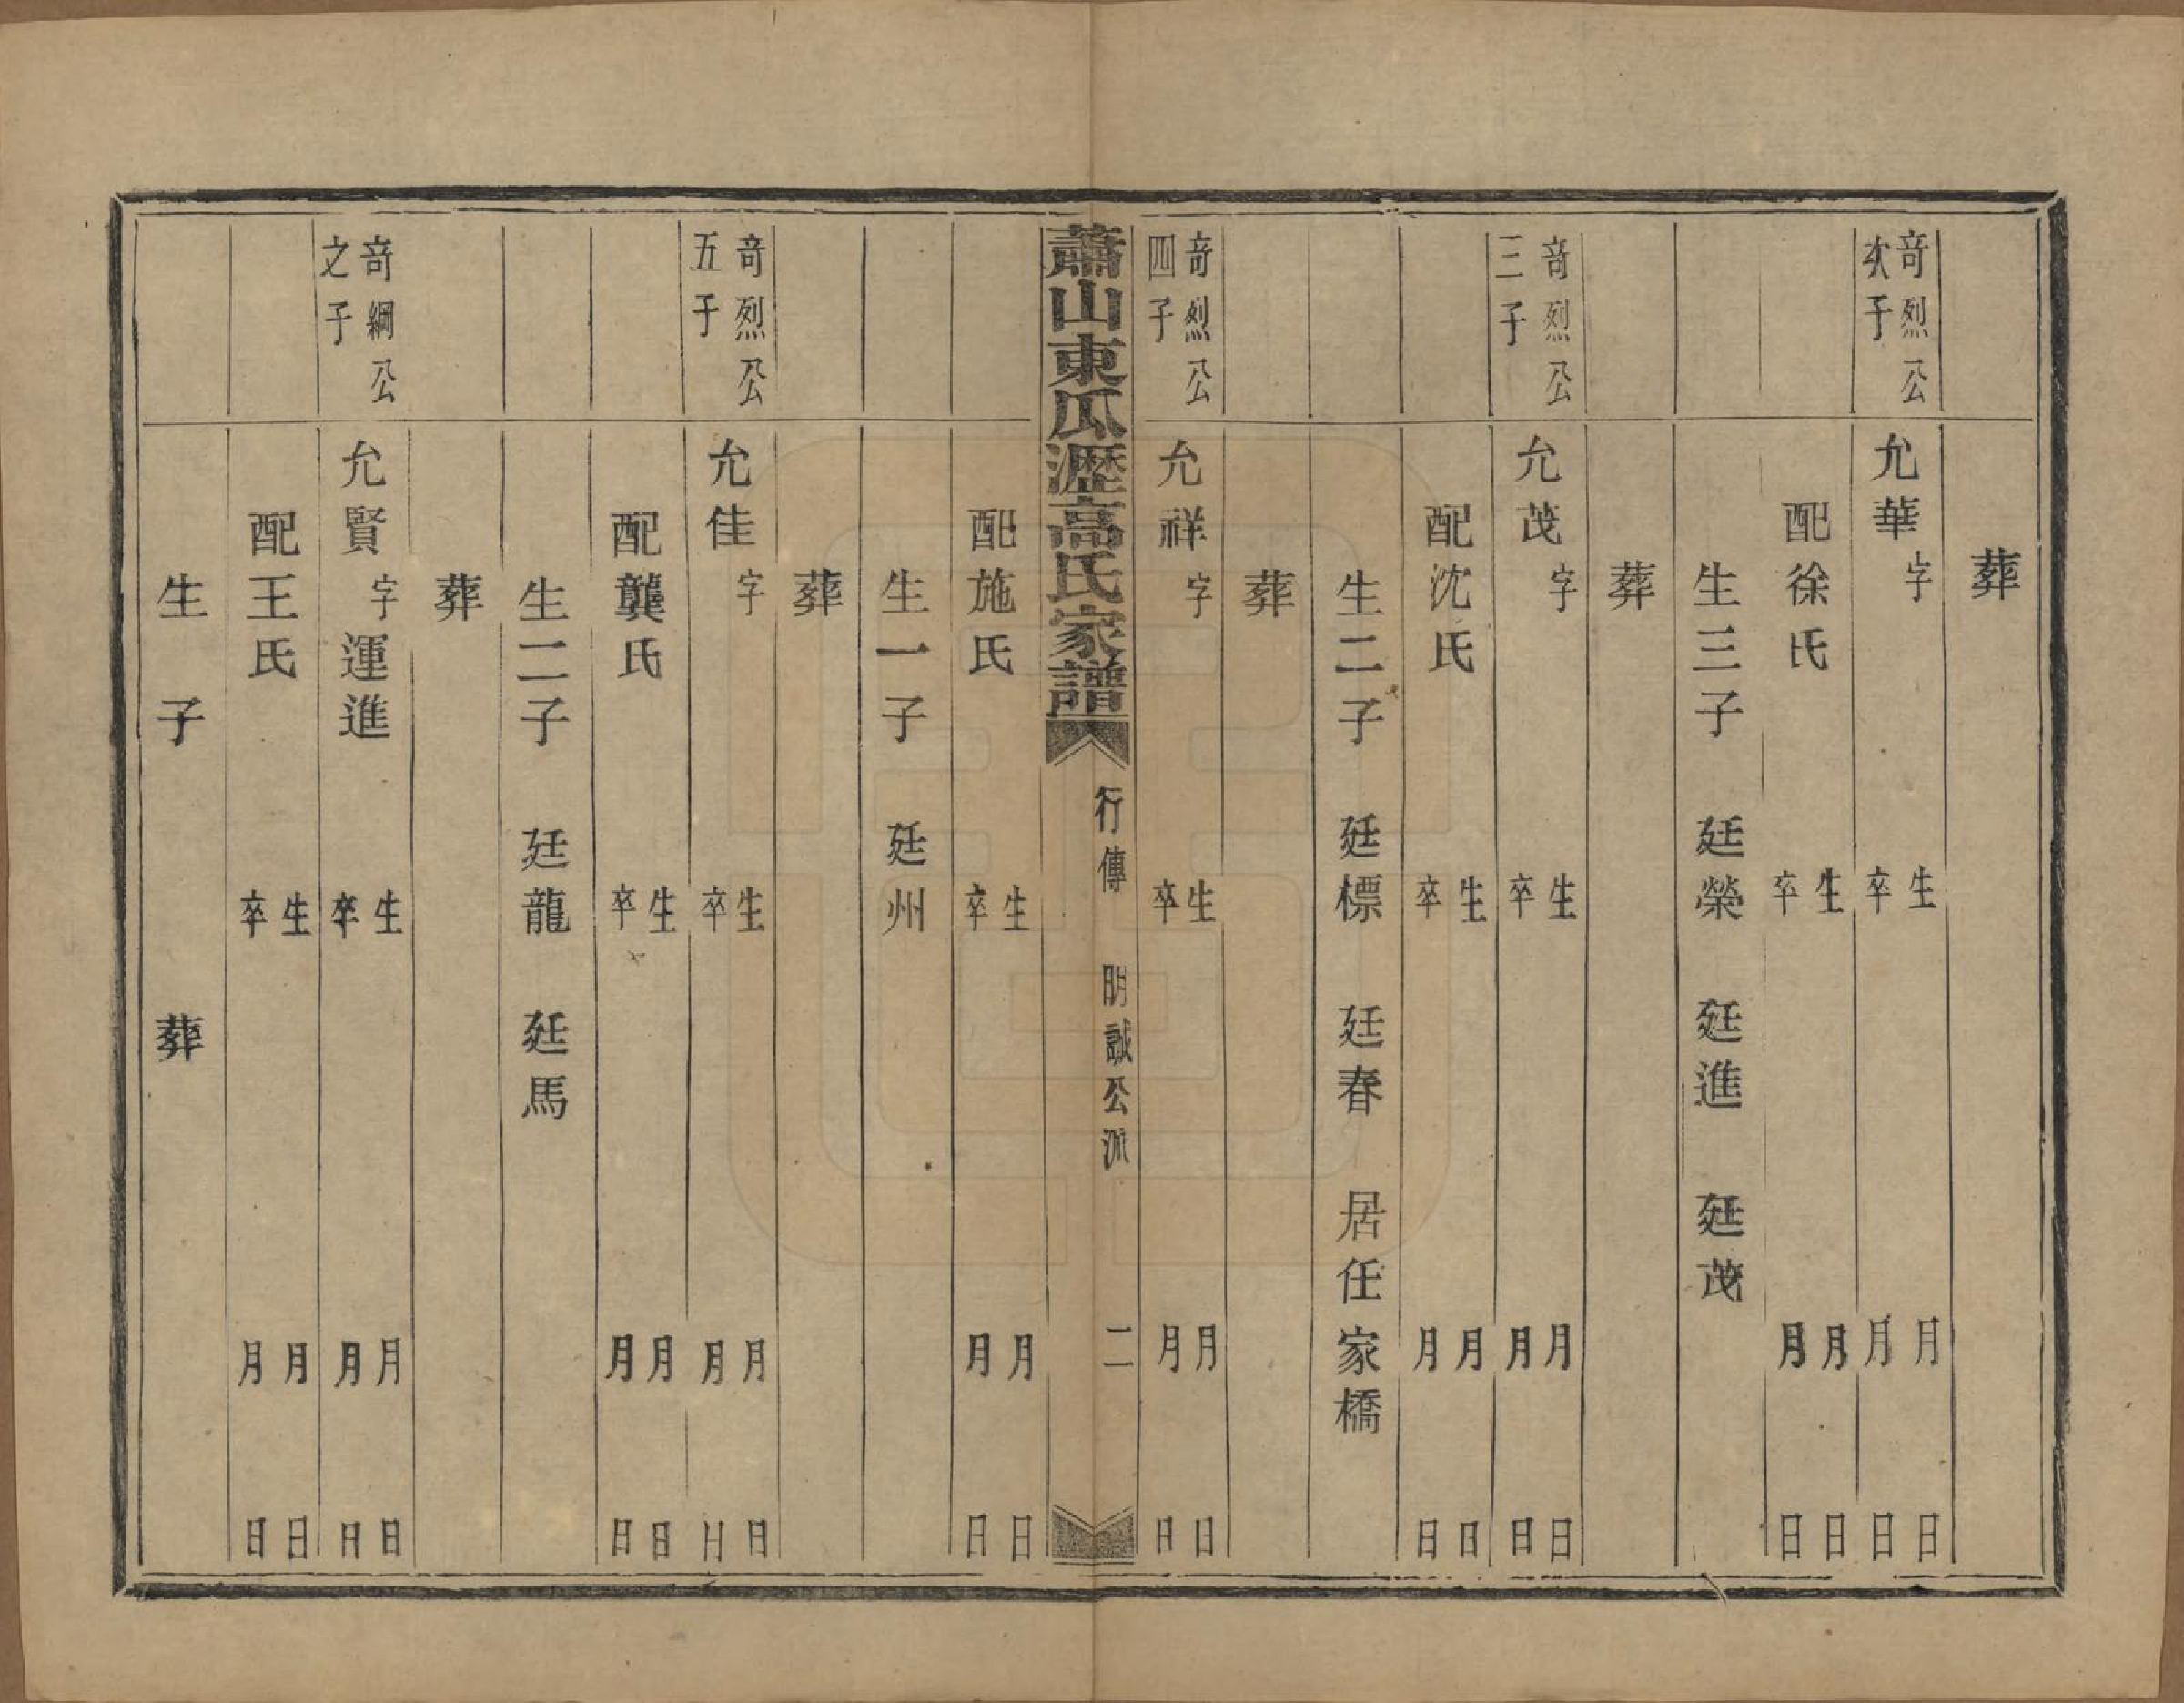 葬
奇烈公
次子
允華 字 生 月 日
卒 月 日
配徐氏 生 月 日
卒 月 日
生三子 廷榮 廷進 廷茂
葬
奇烈公
三子
允茂 字 生 月 日
卒 月 日
配沈氏 生 月 日
卒 月 日
生二子 廷標 廷春 居任家橋
葬
奇烈公
四子
允祥 字 生 月 日
卒 月 日
蕭山東瓜瀝高氏家譜
行傳 明誠公派 二
配施氏 生 月 日
卒 月 日
生一子 廷州
葬
奇烈公
五子
允佳 字 生 月 日
卒 月 日
配龔氏 生 月 日
卒 月 日
生二子 廷龍 廷馬
葬
奇綱公
之子
允賢 字 運進 生 月 日
卒 月 日
配王氏 生 月 日
卒 月 日
生 子 葬